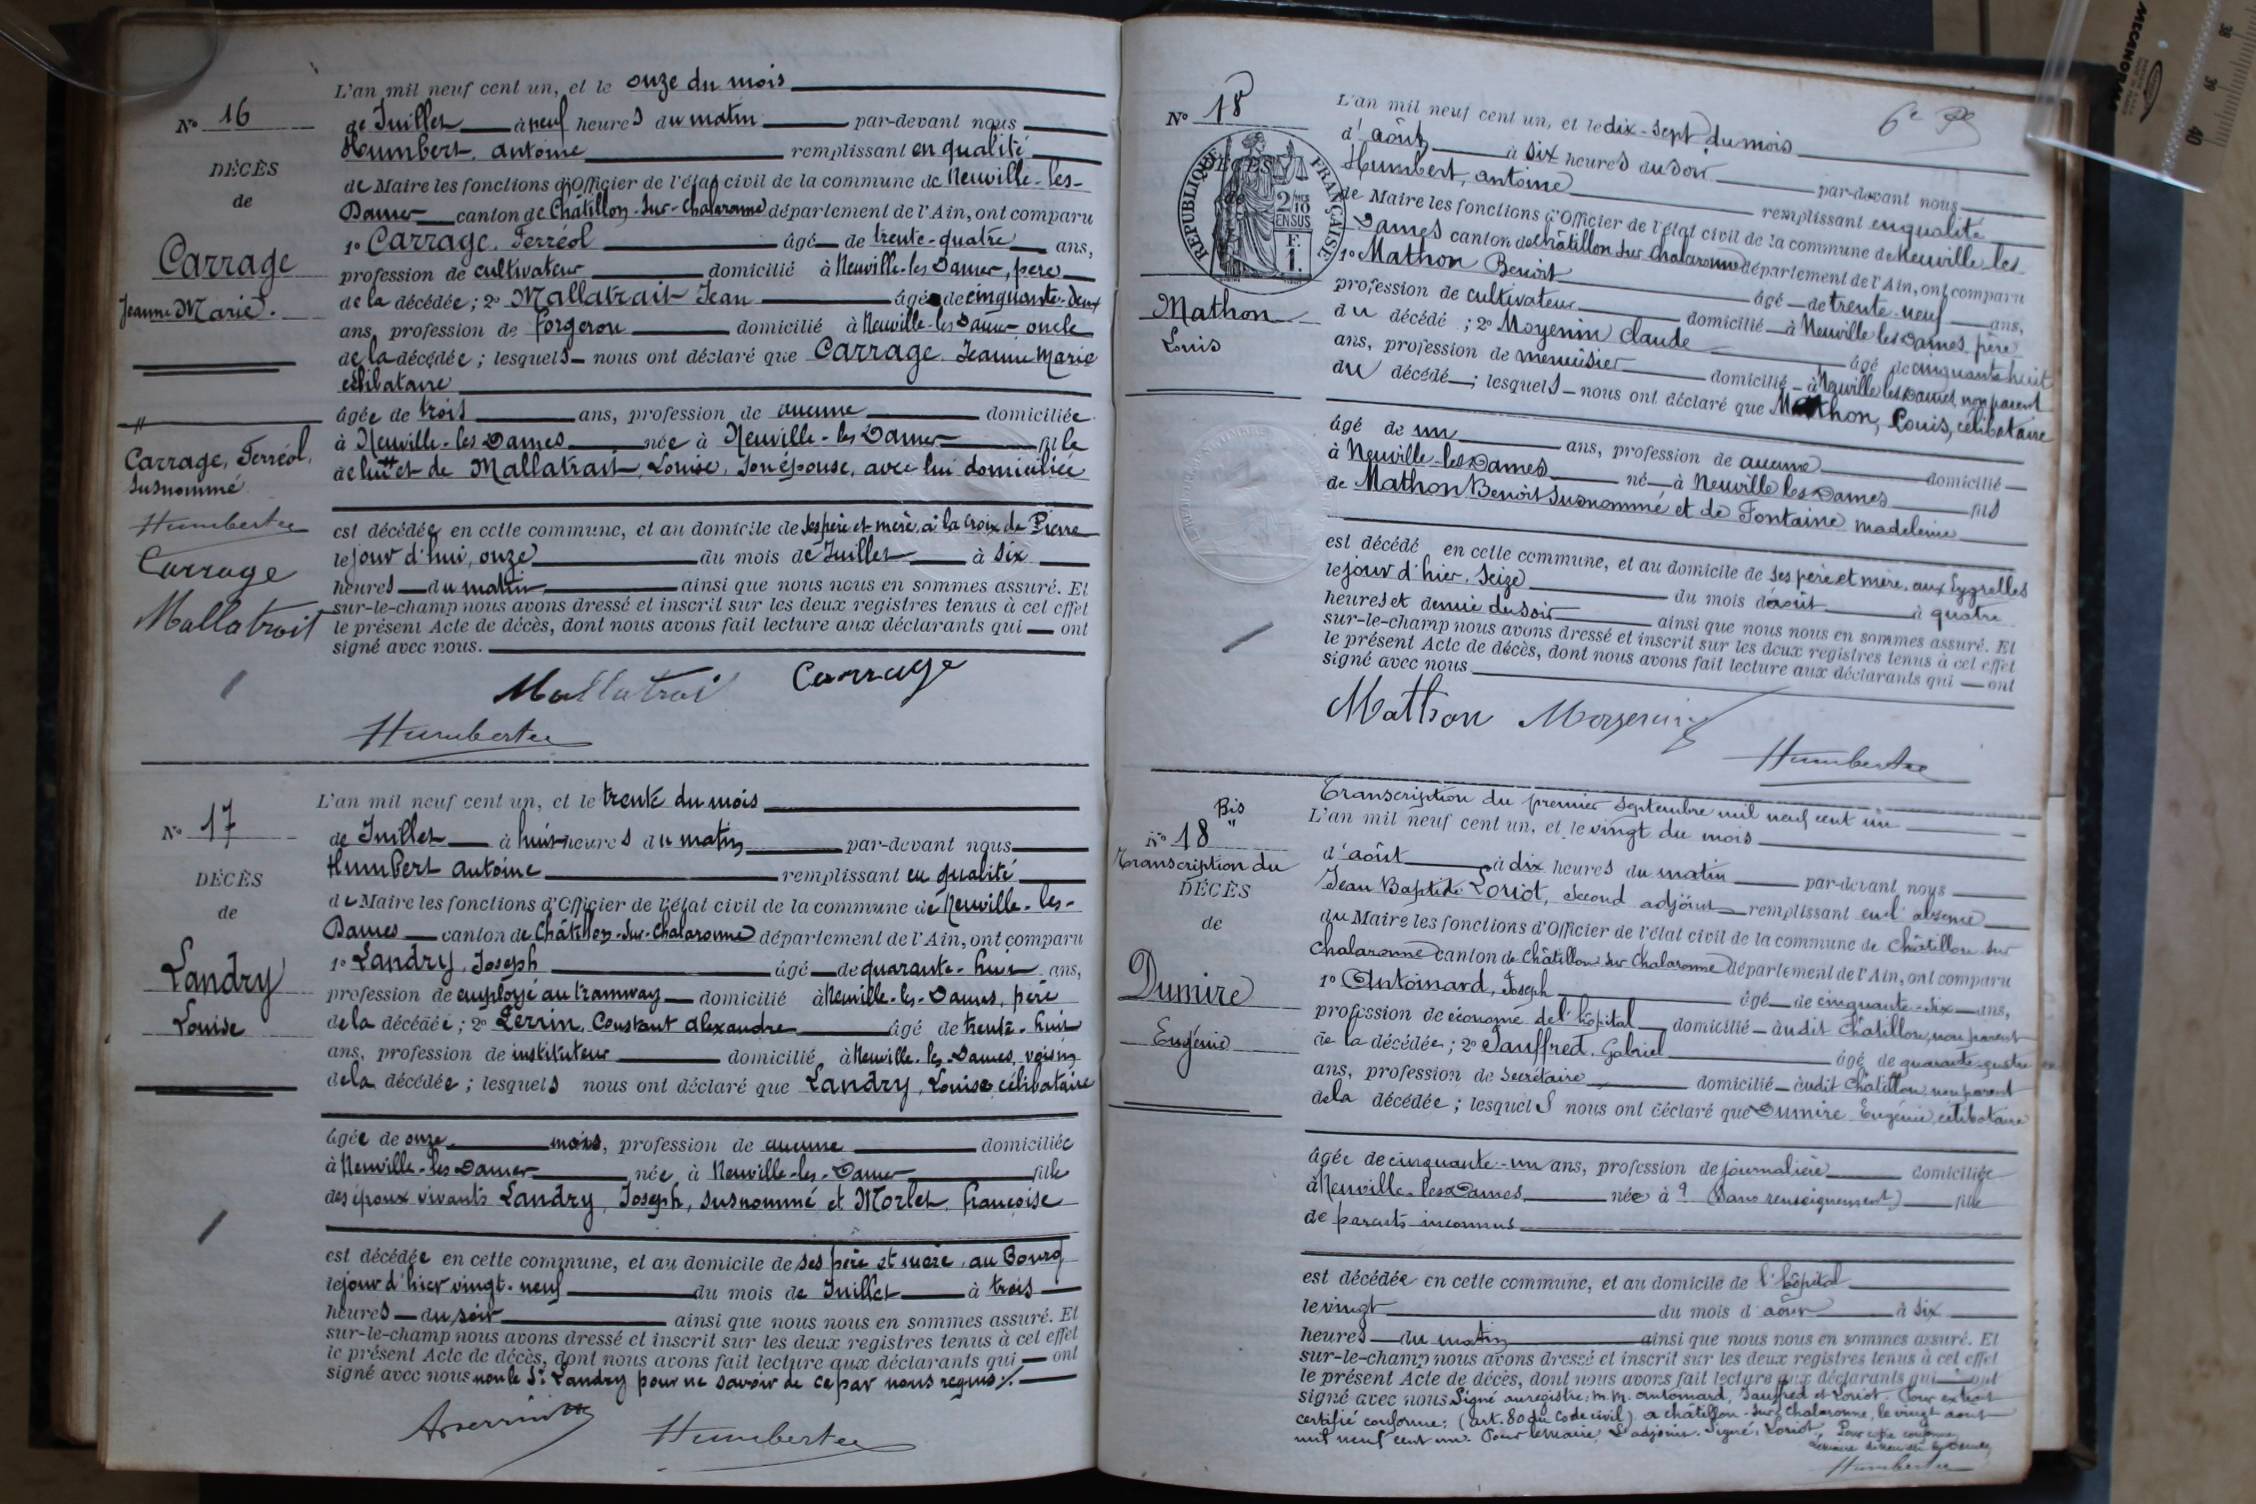 N° 16
DÉCÈS
de
Carrage
Jeanne Marie.
L'an mil neuf cent un, et le onze du mois
de Juillet à neuf heures du matin par-devant nous
Humbert, antoine remplissant en qualité
de Maire les fonctions d'Officier de l'état civil de la commune de Neuville-les-
Dames canton de Châtillon-sur-Chalaronne département de l'Ain, ont comparu
1° Carrage, Ferréol âgé de trente-quatre ans,
profession de cultivateur domicilié à Neuville-les Dames, père
de la décédée; 2° Mallatrait Jean âgé de cinquante-deux
ans, profession de forgeron domicilié à Neuville-les Dames oncle
de la décédée; lesquels nous ont déclaré que Carrage, Jeanne Marie
célibataire
âgée de trois ans, profession de aucune domiciliée
à Neuville-les Dames née à Neuville-les Dames fille
de lui # et de Mallatrait, Louise, son épouse, avec lui domiciliée
est décédée en cette commune, et au domicile de ses père et mère, à la Croix de Pierre
le jour d'hui, onze du mois de Juillet à six
heures du matin ainsi que nous nous en sommes assuré. Et
sur-le-champ nous avons dressé et inscrit sur les deux registres tenus à cet effet
le présent Acte de décès, dont nous avons fait lecture aux déclarants qui ont
signé avec nous.
#
Carrage, Ferréol,
susnommé
Humbert
Carrage
Mallatrait
Mallatrait Carrage
Humbert
N° 17
DÉCÈS
de
Landry
Louise
L'an mil neuf cent un, et le trente du mois
de Juillet à huit heures du matin par-devant nous
Humbert antoine remplissant en qualité
de Maire les fonctions d'Officier de l'état civil de la commune de Neuville-les-
Dames canton de Châtillon-sur-Chalaronne département de l'Ain, ont comparu
1° Landry, Joseph âgé de quarante-huit ans,
profession de employé au tramway domicilié à Neuville-les-Dames, père
de la décédée; 2° Perrin, Constant Alexandre âgé de trente-huit
ans, profession de instituteur domicilié à Neuville-les-Dames, voisin
de la décédée; lesquels nous ont déclaré que Landry, Louise, célibataire
âgée de onze mois, profession de aucune domiciliée
à Neuville-les Dames née à Neuville-les-Dames fille
des époux vivants Landry, Joseph, susnommé et Morlet, françoise
est décédée en cette commune, et au domicile de ses père et mère, au Bourg
le jour d'hier vingt-neuf du mois de Juillet à trois
heures du soir ainsi que nous nous en sommes assuré. Et
sur-le-champ nous avons dressé et inscrit sur les deux registres tenus à cet effet
le présent Acte de décès, dont nous avons fait lecture aux déclarants qui ont
signé avec nous non le Sr. Landry pour ne savoir de ce par nous requis.
Humbert
6e
N° 18
DÉCÈS
de
RÉPUBLIQUE FRANÇAISE
2/10 EN SUS
F. 1.
Mathon
Louis
L'an mil neuf cent un, et le dix-sept du mois
d'août à six heures du soir par-devant nous
Humbert, antoine remplissant en qualité
de Maire les fonctions d'Officier de l'état civil de la commune de Neuville les
Dames canton de Châtillon sur Chalaronne département de l'Ain, ont comparu
1° Mathon Benoit âgé de trente-neuf ans,
profession de cultivateur domicilié à Neuville les Dames, père
du décédé; 2° Moyenin Claude âgé de cinquante huit
ans, profession de menuisier domicilié à Neuville les Dames, non parent
du décédé; lesquels nous ont déclaré que Mathon, Louis, célibataire
âgé de un ans, profession de aucune domicilié
à Neuville-les Dames né à Neuville les Dames fils
de Mathon Benoit susnommé et de Fontaine madeleine
est décédé en cette commune, et au domicile de ses père et mère, aux
le jour d'hier, seize du mois d'août à quatre
heures et demie du soir ainsi que nous nous en sommes assuré. Et
sur-le-champ nous avons dressé et inscrit sur les deux registres tenus à cet effet
le présent Acte de décès, dont nous avons fait lecture aux déclarants qui ont
signé avec nous
Mathon Moyenin
Humbert
N° 18 Bis
Transcription du
DÉCÈS
de
Dumire
Eugénie
Transcription du premier septembre mil neuf cent un
L'an mil neuf cent un, et le vingt du mois
d'août à dix heures du matin par-devant nous
Jean Baptiste Loriot, second adjoint remplissant en l'absence
du Maire les fonctions d'Officier de l'état civil de la commune de Châtillon sur
Chalaronne canton de Châtillon sur Chalaronne département de l'Ain, ont comparu
1° Antoinard, Joseph âgé de cinquante-six ans,
profession de économe de l'hôpital domicilié audit Châtillon, non parent
de la décédée; 2° Jauffred, Gabriel âgé de quarante-quatre
ans, profession de secrétaire domicilié audit Châtillon, non parent
de la décédée; lesquels nous ont déclaré que Dumire Eugénie, célibataire
âgée de cinquante-un ans, profession de journalière domiciliée
à Neuville-les Dames née à ? (sans renseignement) fille
de parents inconnus
est décédée en cette commune, et au domicile de l'hôpital
le vingt du mois d'août à six
heures du matin ainsi que nous nous en sommes assuré. Et
sur-le-champ nous avons dressé et inscrit sur les deux registres tenus à cet effet
le présent Acte de décès, dont nous avons fait lecture aux déclarants qui ont
signé avec nous Signé au registre: M.M. Antoinard, Jauffred et Loriot. Pour extrait
certifié conforme: (art. 80 du Code civil) à Châtillon-sur-Chalaronne, le vingt août
mil neuf cent un. Pour le Maire, L'adjoint. Signé: Loriot, Pour copie conforme,
Le maire de Neuville les Dames,
Humbert
MECANORMA
38
39
40